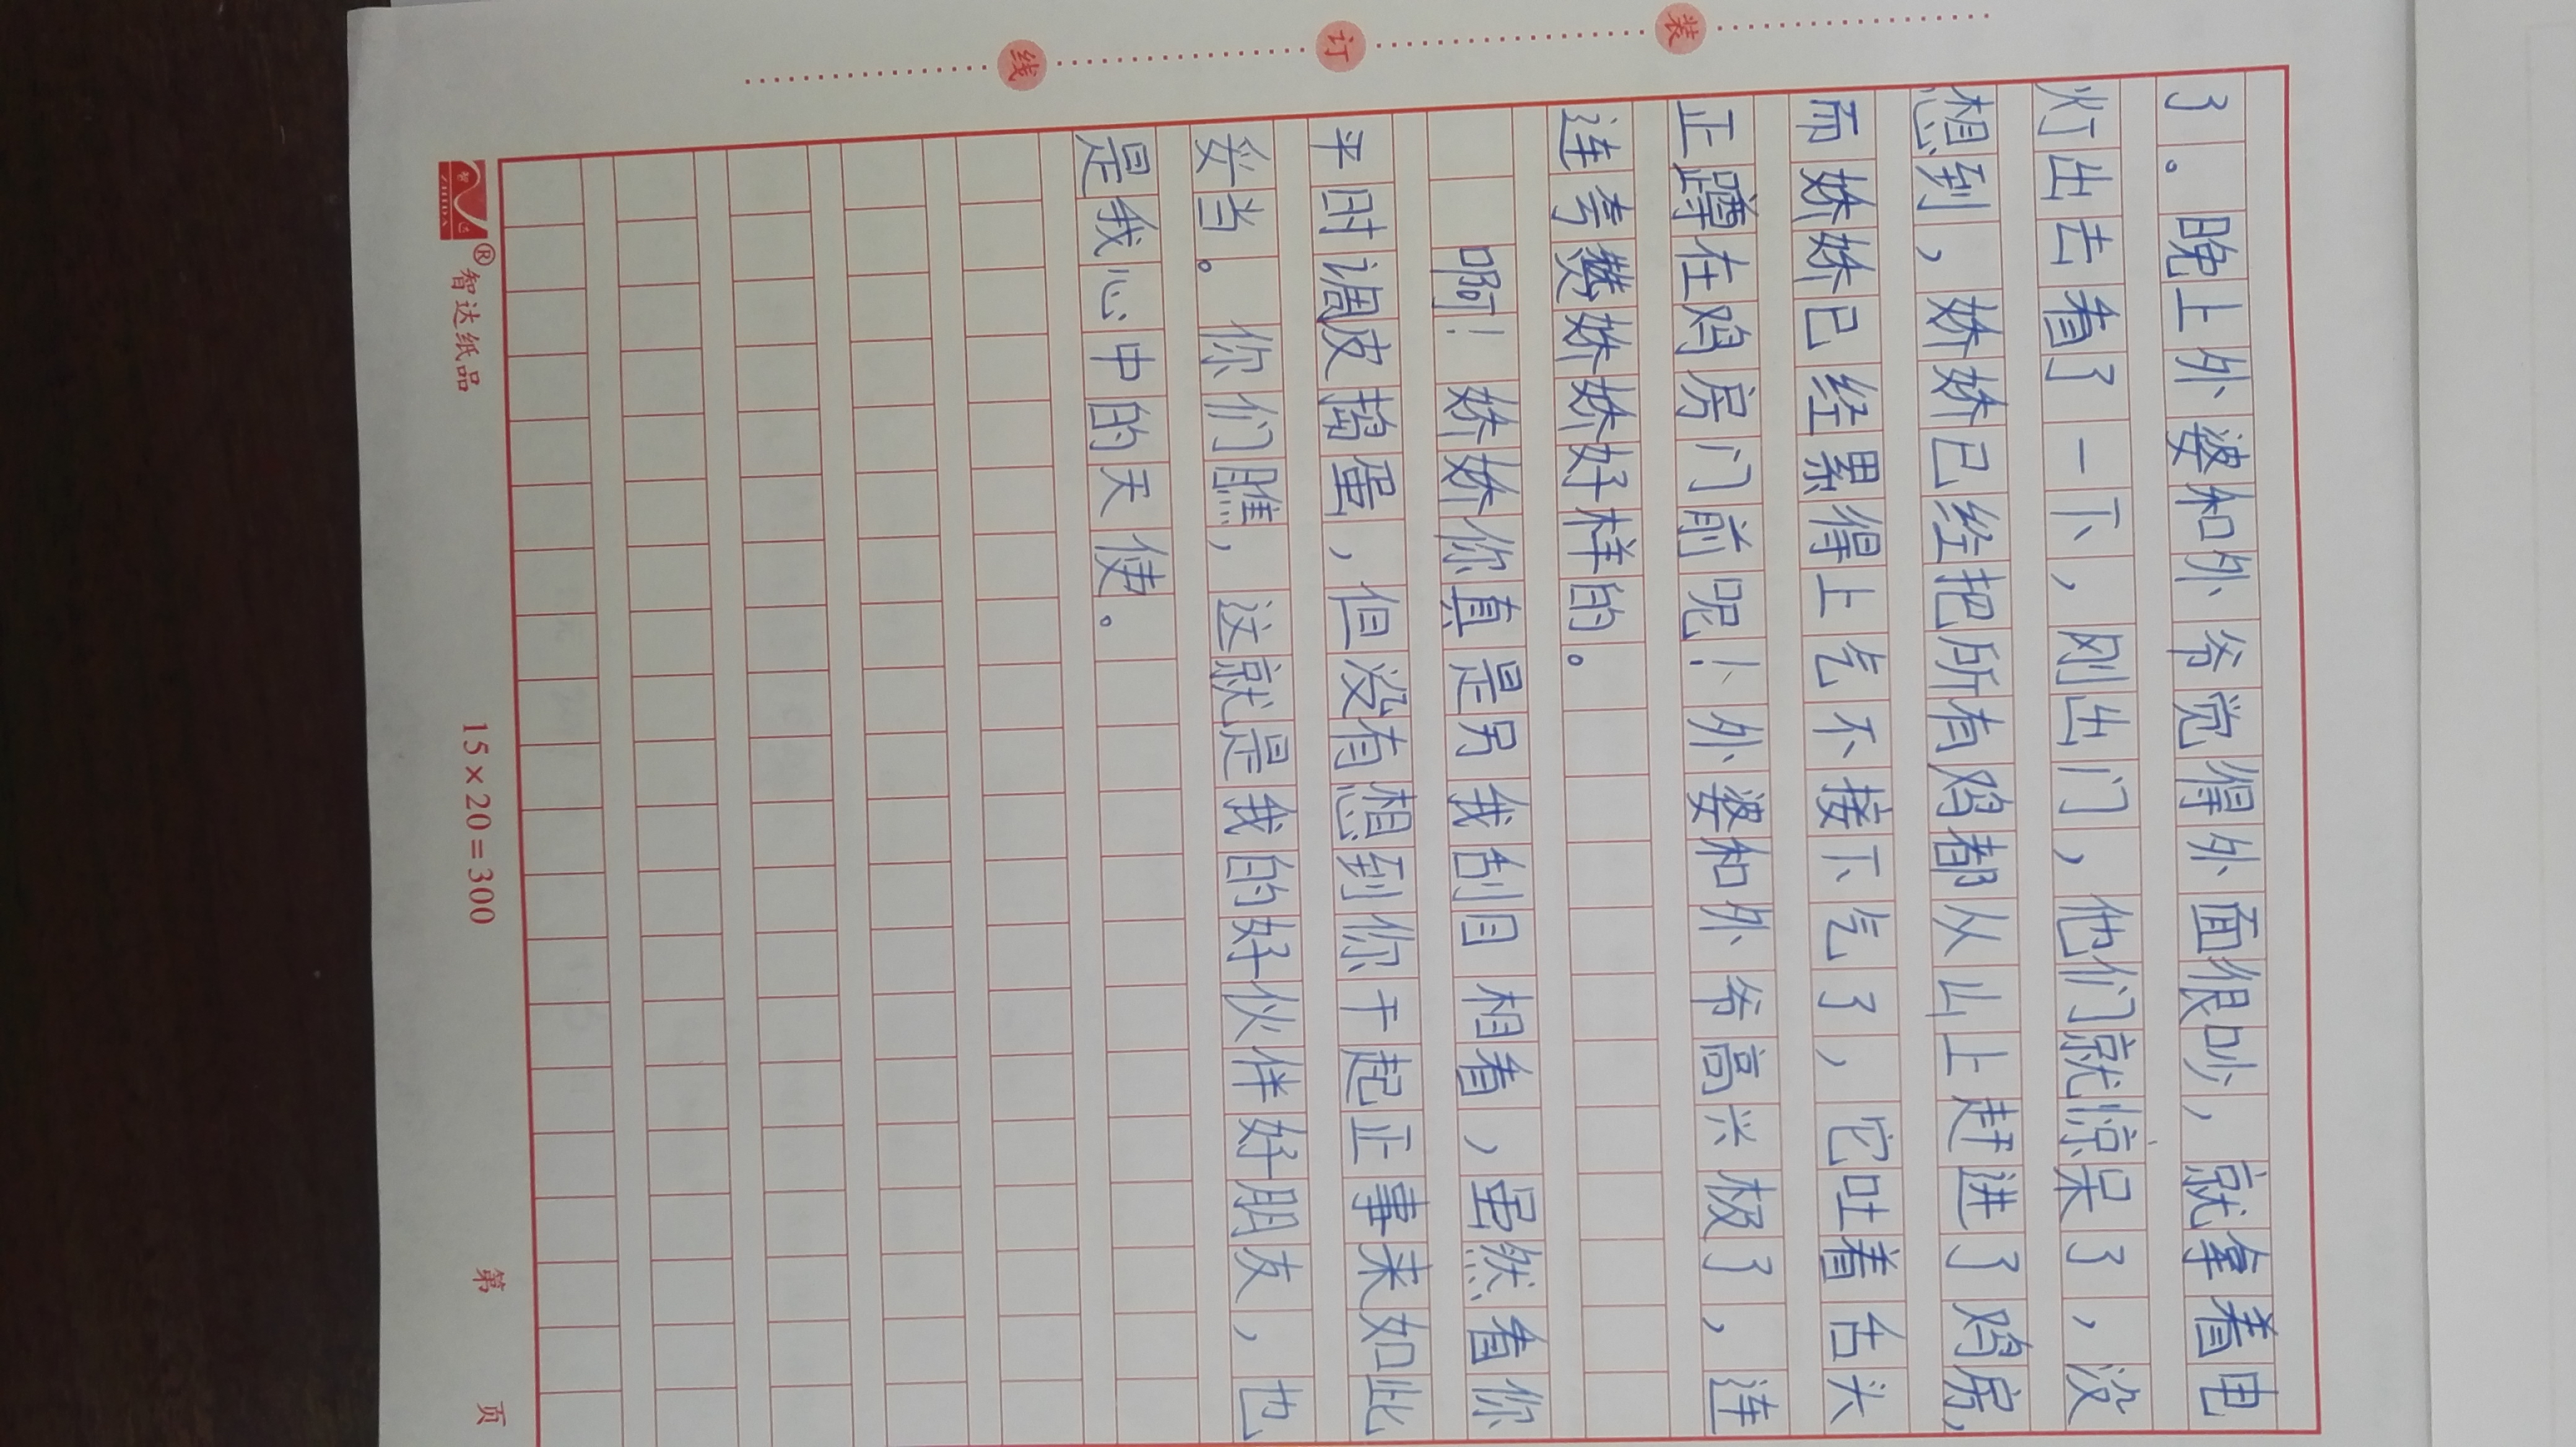 装 订 线
了。晚上外婆和外爷觉得外面很吵,就拿着电
灯出去看了一下,刚出门,他们就惊呆了,没
想到,娇娇已经把所有鸡都从山上赶进了鸡房,
而娇娇已经累得上气不接下气了,它吐着舌头
正蹲在鸡房门前呢!外婆和外爷高兴极了,连
连夸赞娇娇好样的。
啊!娇娇你真是另我刮目相看,虽然看你
平时调皮捣蛋,但没有想到你干起正事来如此
妥当。你们瞧,这就是我的好伙伴好朋友,也
是我心中的天使。
智达 ZHIDA ® 智达纸品 15×20=300 第 页